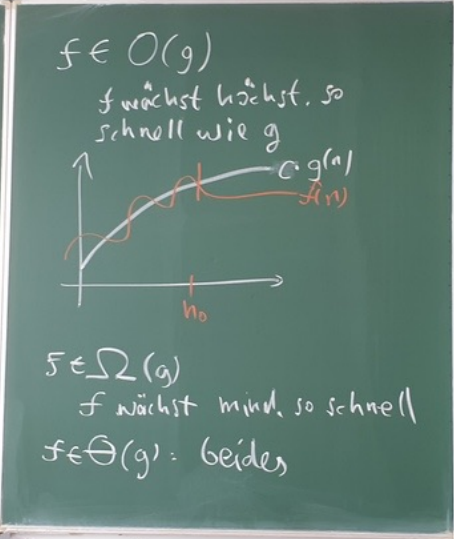 f ∈ O(g)
f wächst höchst. so
schnell wie g
c · g(n)
f(n)
n₀
f ∈ Ω(g)
f wächst mind. so schnell
f ∈ Θ(g) : beides